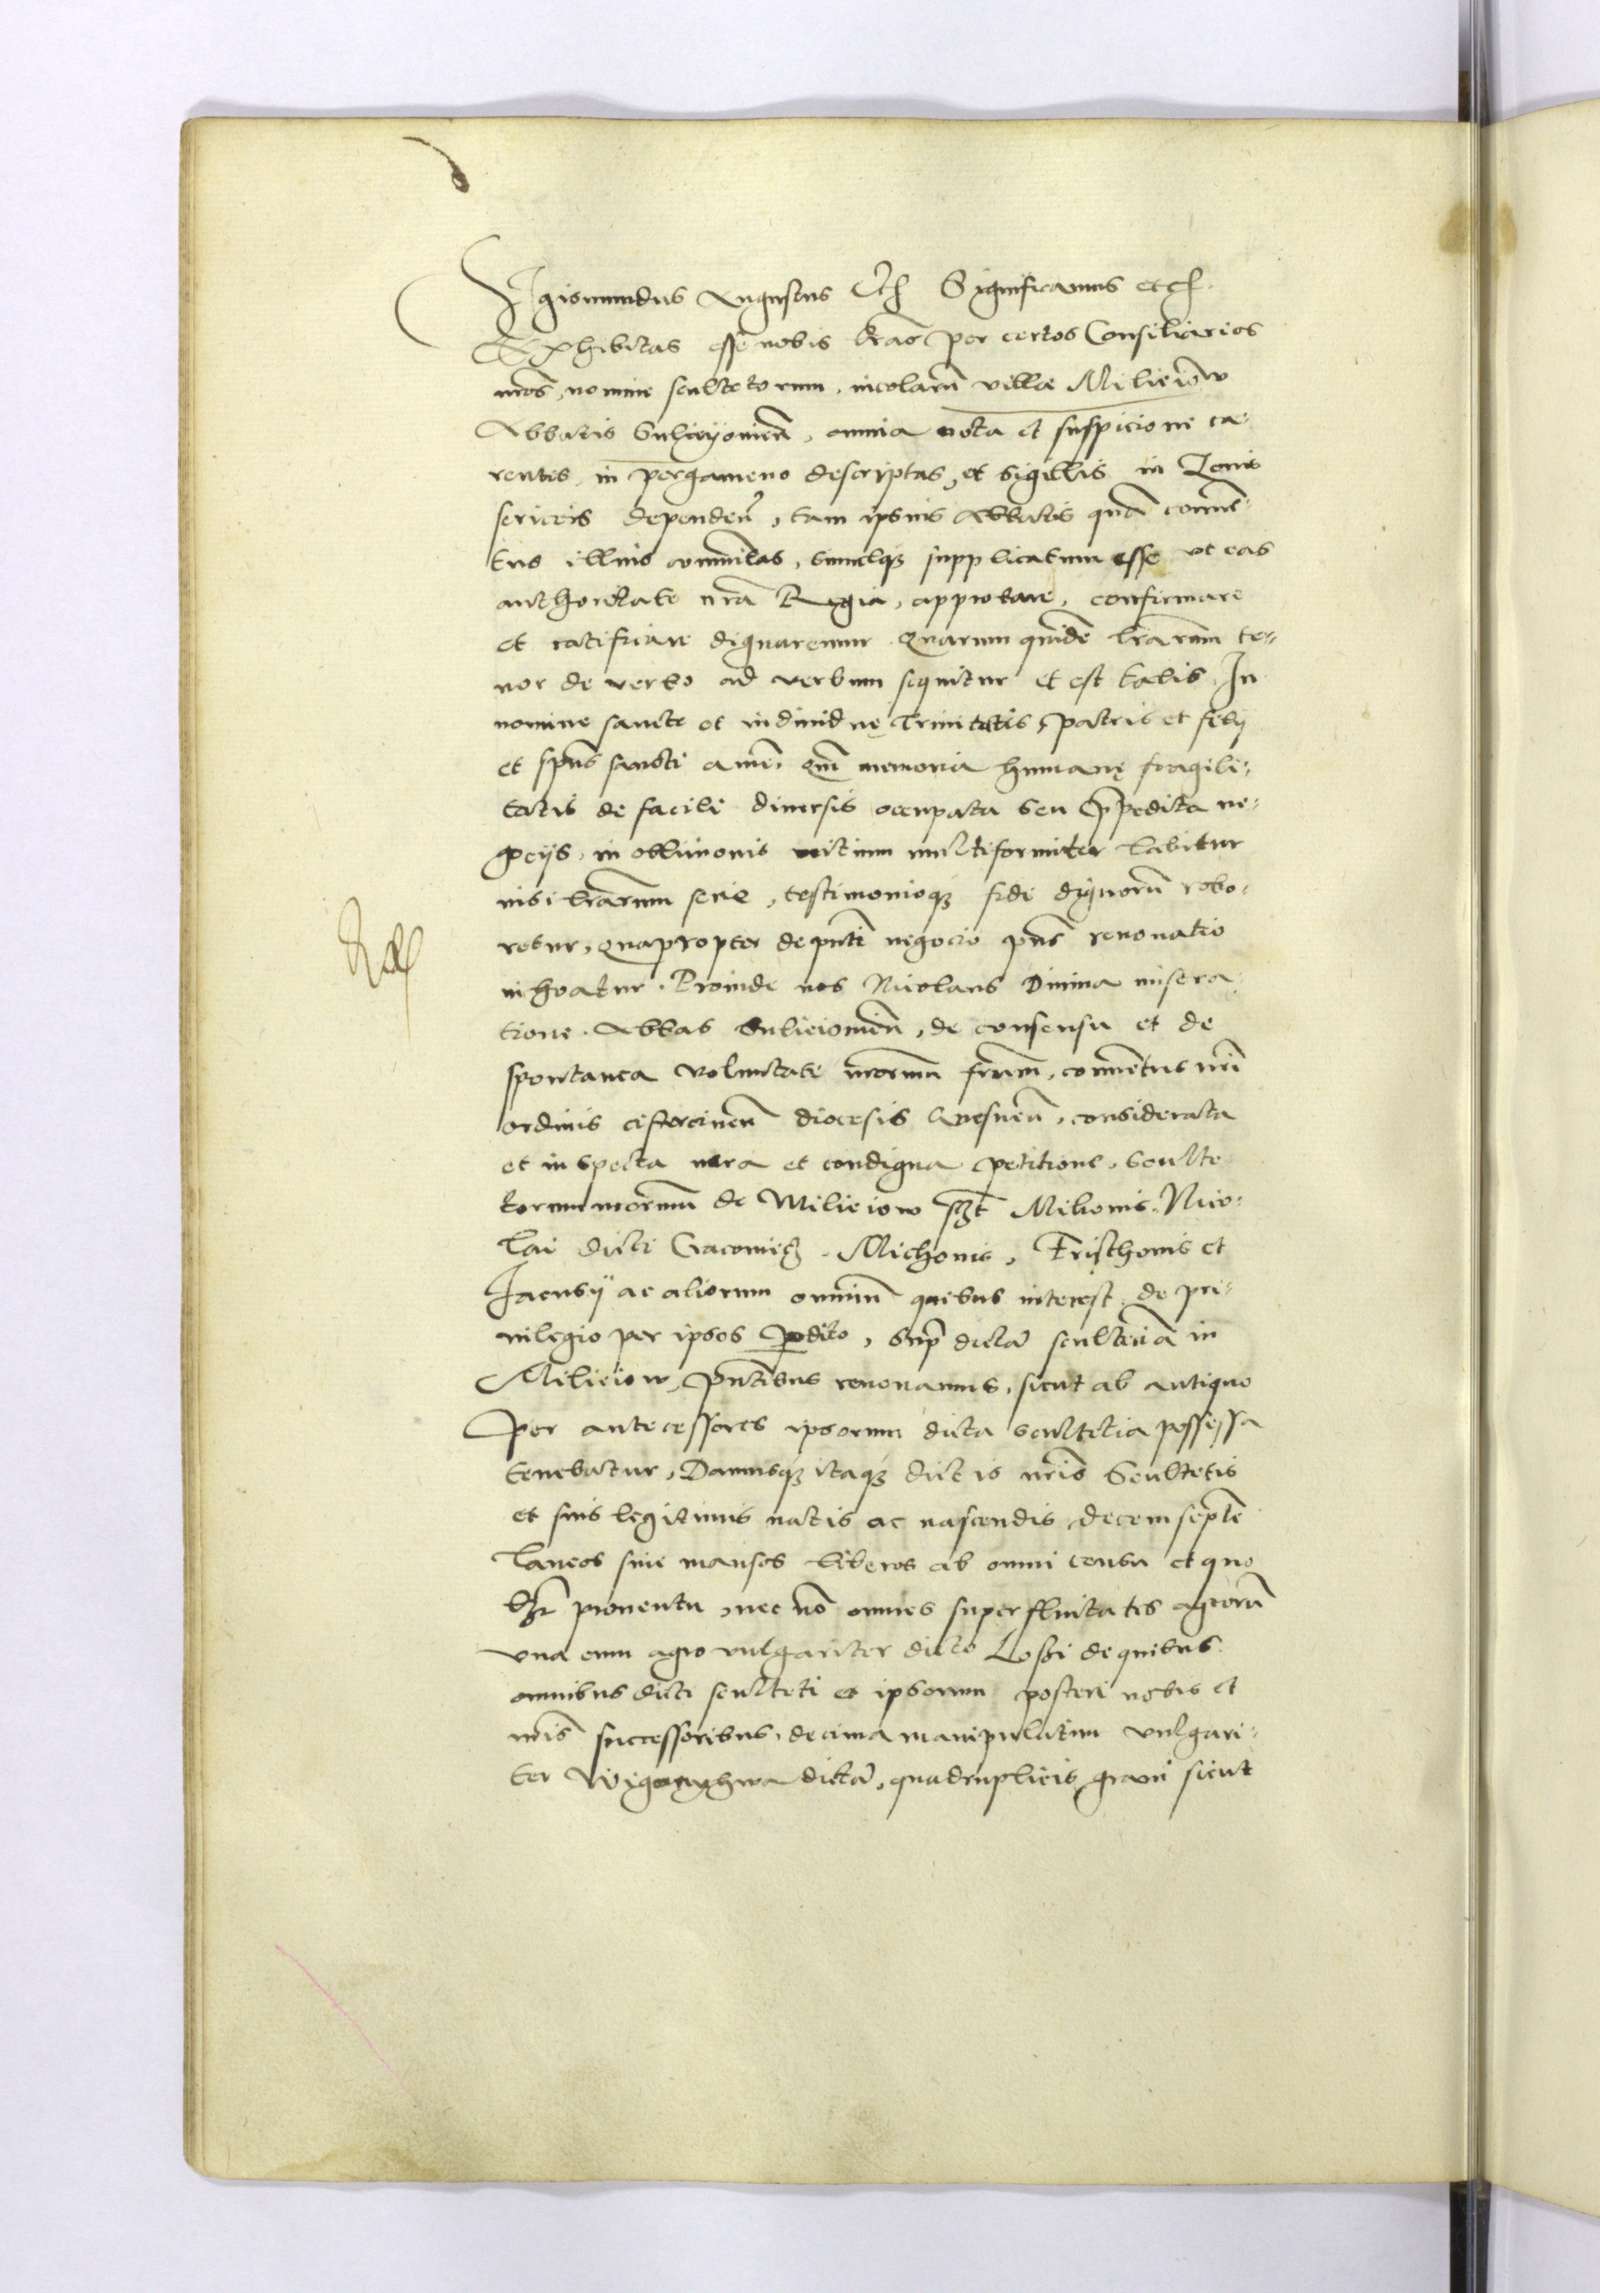 Sigismundus Augustus Etc Significamus etc.
Exhibitas esse nobis lr̃as per certos Consiliarios
nr̃os, nomine scultetorum, incolarũ villæ Milieiow
Abbatis Suliejouień, omnia nota et suspicione ca-
rentes, in pergameno descriptas, et sigillis in Zonis
sericeis depending̃, tam ipsius Abbatis quã conuẽ-
tus illius cõmunitas, simulq3 supplicatum esse ut eas
authoritate nr̃a Regia, approbare, confirmare
et ratificare dignaremur. Quarum quidẽ lr̃arum te-
nor de verbo ad verbum sequitur et est talis. In
nomine sancte et indiuiduę Trinitatis, patris et filij
et spũs sancti amẽ. Qm̃ memoria humanę fragili-
tatis de facili diuersis occupata seu p̃pedita ne-
gocijs, in obliuionis vitium multiformiter labitur
nisi lr̃arum serie, testimonioq3 fide dignorũ robo-
retur, Quapropter de pñti negocio pñs renouatio
inchoatur. Proinde nos Nicolaus Diuina misera-
tione Abbas Sulieiouień, de consensu et de
spontanea voluntate nr̃orum fr̃um, conuẽtus nr̃i
ordinis cistercineñ diocesis Gnesneñ, considerata
et inspecta vera et condigna petitione, sculte-
torum nr̃orum de Milieiow s3t Milionis, Nico-
lai dicti Michonis, Fristhonis et
Jacusij ac aliorum omnium quibus interest, de pri-
uilegio per ipsos p̱dito, sup̃ dictã scultetiã in
Milieiow, pñtibus renouamus, sicut ab antiquo
Per antecessores ipsorum dicta scultetia possessa
tenebatur, Damusq3 itaq3 dictis nr̃is Scultetis
et suis legitimis natis ac nascendis decem septẽ
laneos siue mansos liberos ab omni censu et quo
lib3 prouentu, nec nõ omnes superfluitates agrorũ
vna cum agro vulgariter dicto Loßi de quibus
omnibus dicti sculteti et ipsorum posteri nobis et
nr̃is successoribus, decima manipulatim vulgari-
ter dictã, quadruplicis grani sicut